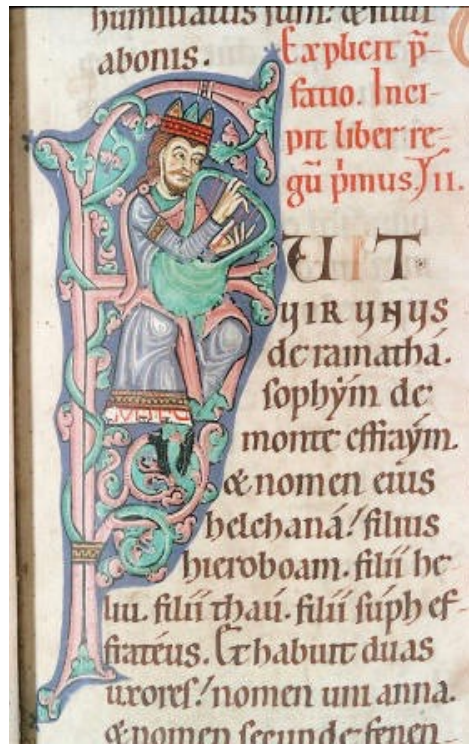 humiliatus sum. & mut
abonis.
Explicit p̄
fatio. Inci-
pit liber re-
gū p̓mus. II.
FUIT
VIR VNVS
de ramathá.
sophým de
monte effraým.
& nomen eius
helchaná! filius
hieroboam. filii he
liu. filii thaú. filii súph ef-
fratéus. Et habuit duas
uxores! nomen uni anna.
& nomen secunde fenen-